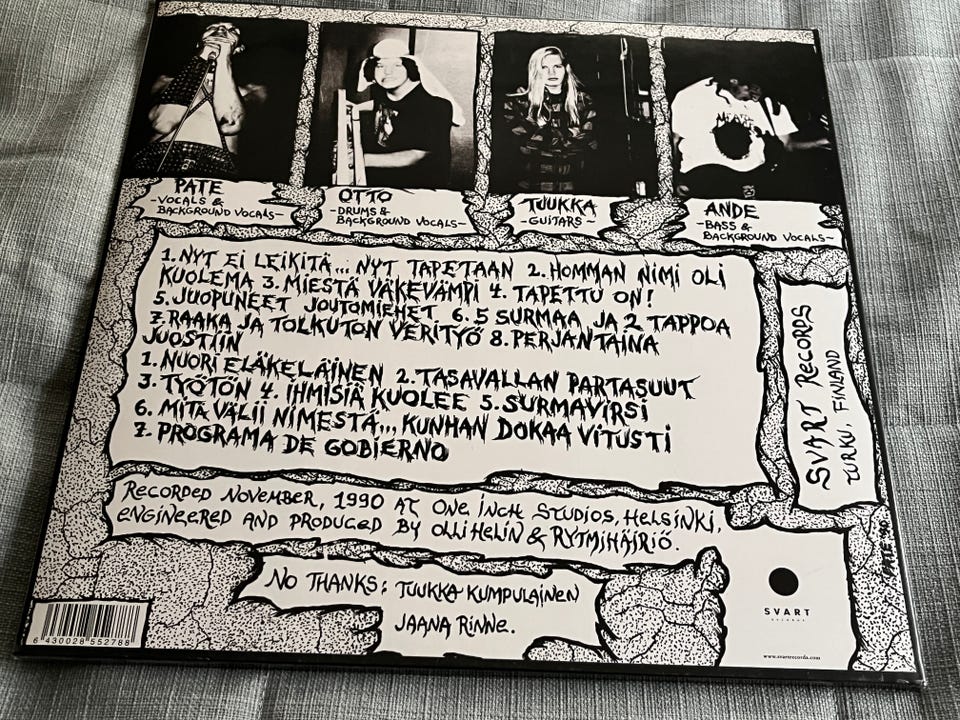 PATE
-VOCALS &
BACKGROUND VOCALS-
OTTO
-DRUMS &
BACKGROUND VOCALS-
TUUKKA
-GUITARS-
ANDE
-BASS &
BACKGROUND VOCALS-
1. NYT EI LEIKITÄ... NYT TAPETAAN 2. HOMMAN NIMI OLI
KUOLEMA 3. MIESTÄ VÄKEVÄMPI 4. TAPETTU ON!
5. JUOPUNEET JOUTOMIEHET 6. 5 SURMAA JA 2 TAPPOA
7. RAAKA JA TOLKUTON VERITYÖ 8. PERJANTAINA
JUOSTIIN
1. NUORI ELÄKELÄINEN 2. TASAVALLAN PARTASUUT
3. TYÖTÖN 4. IHMISIÄ KUOLEE 5. SURMAVIRSI
6. MITÄ VÄLII NIMESTÄ... KUNHAN DOKAA VITUSTI
7. PROGRAMA DE GOBIERNO
SVART RECORDS
TURKU, FINLAND
RECORDED NOVEMBER, 1990 AT ONE INCH STUDIOS, HELSINKI,
ENGINEERED AND PRODUCED BY OLLI HELIN & RYTMIHÄIRIÖ.
PATE -90
NO THANKS: TUUKKA KUMPULAINEN
JAANA RINNE.
SVART
RECORDS
www.svartrecords.com
6 430028 552788